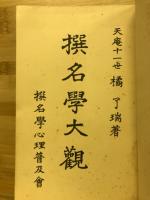 天庵十一世 橘了瑞著
撰名學大觀
撰名學心理普及會